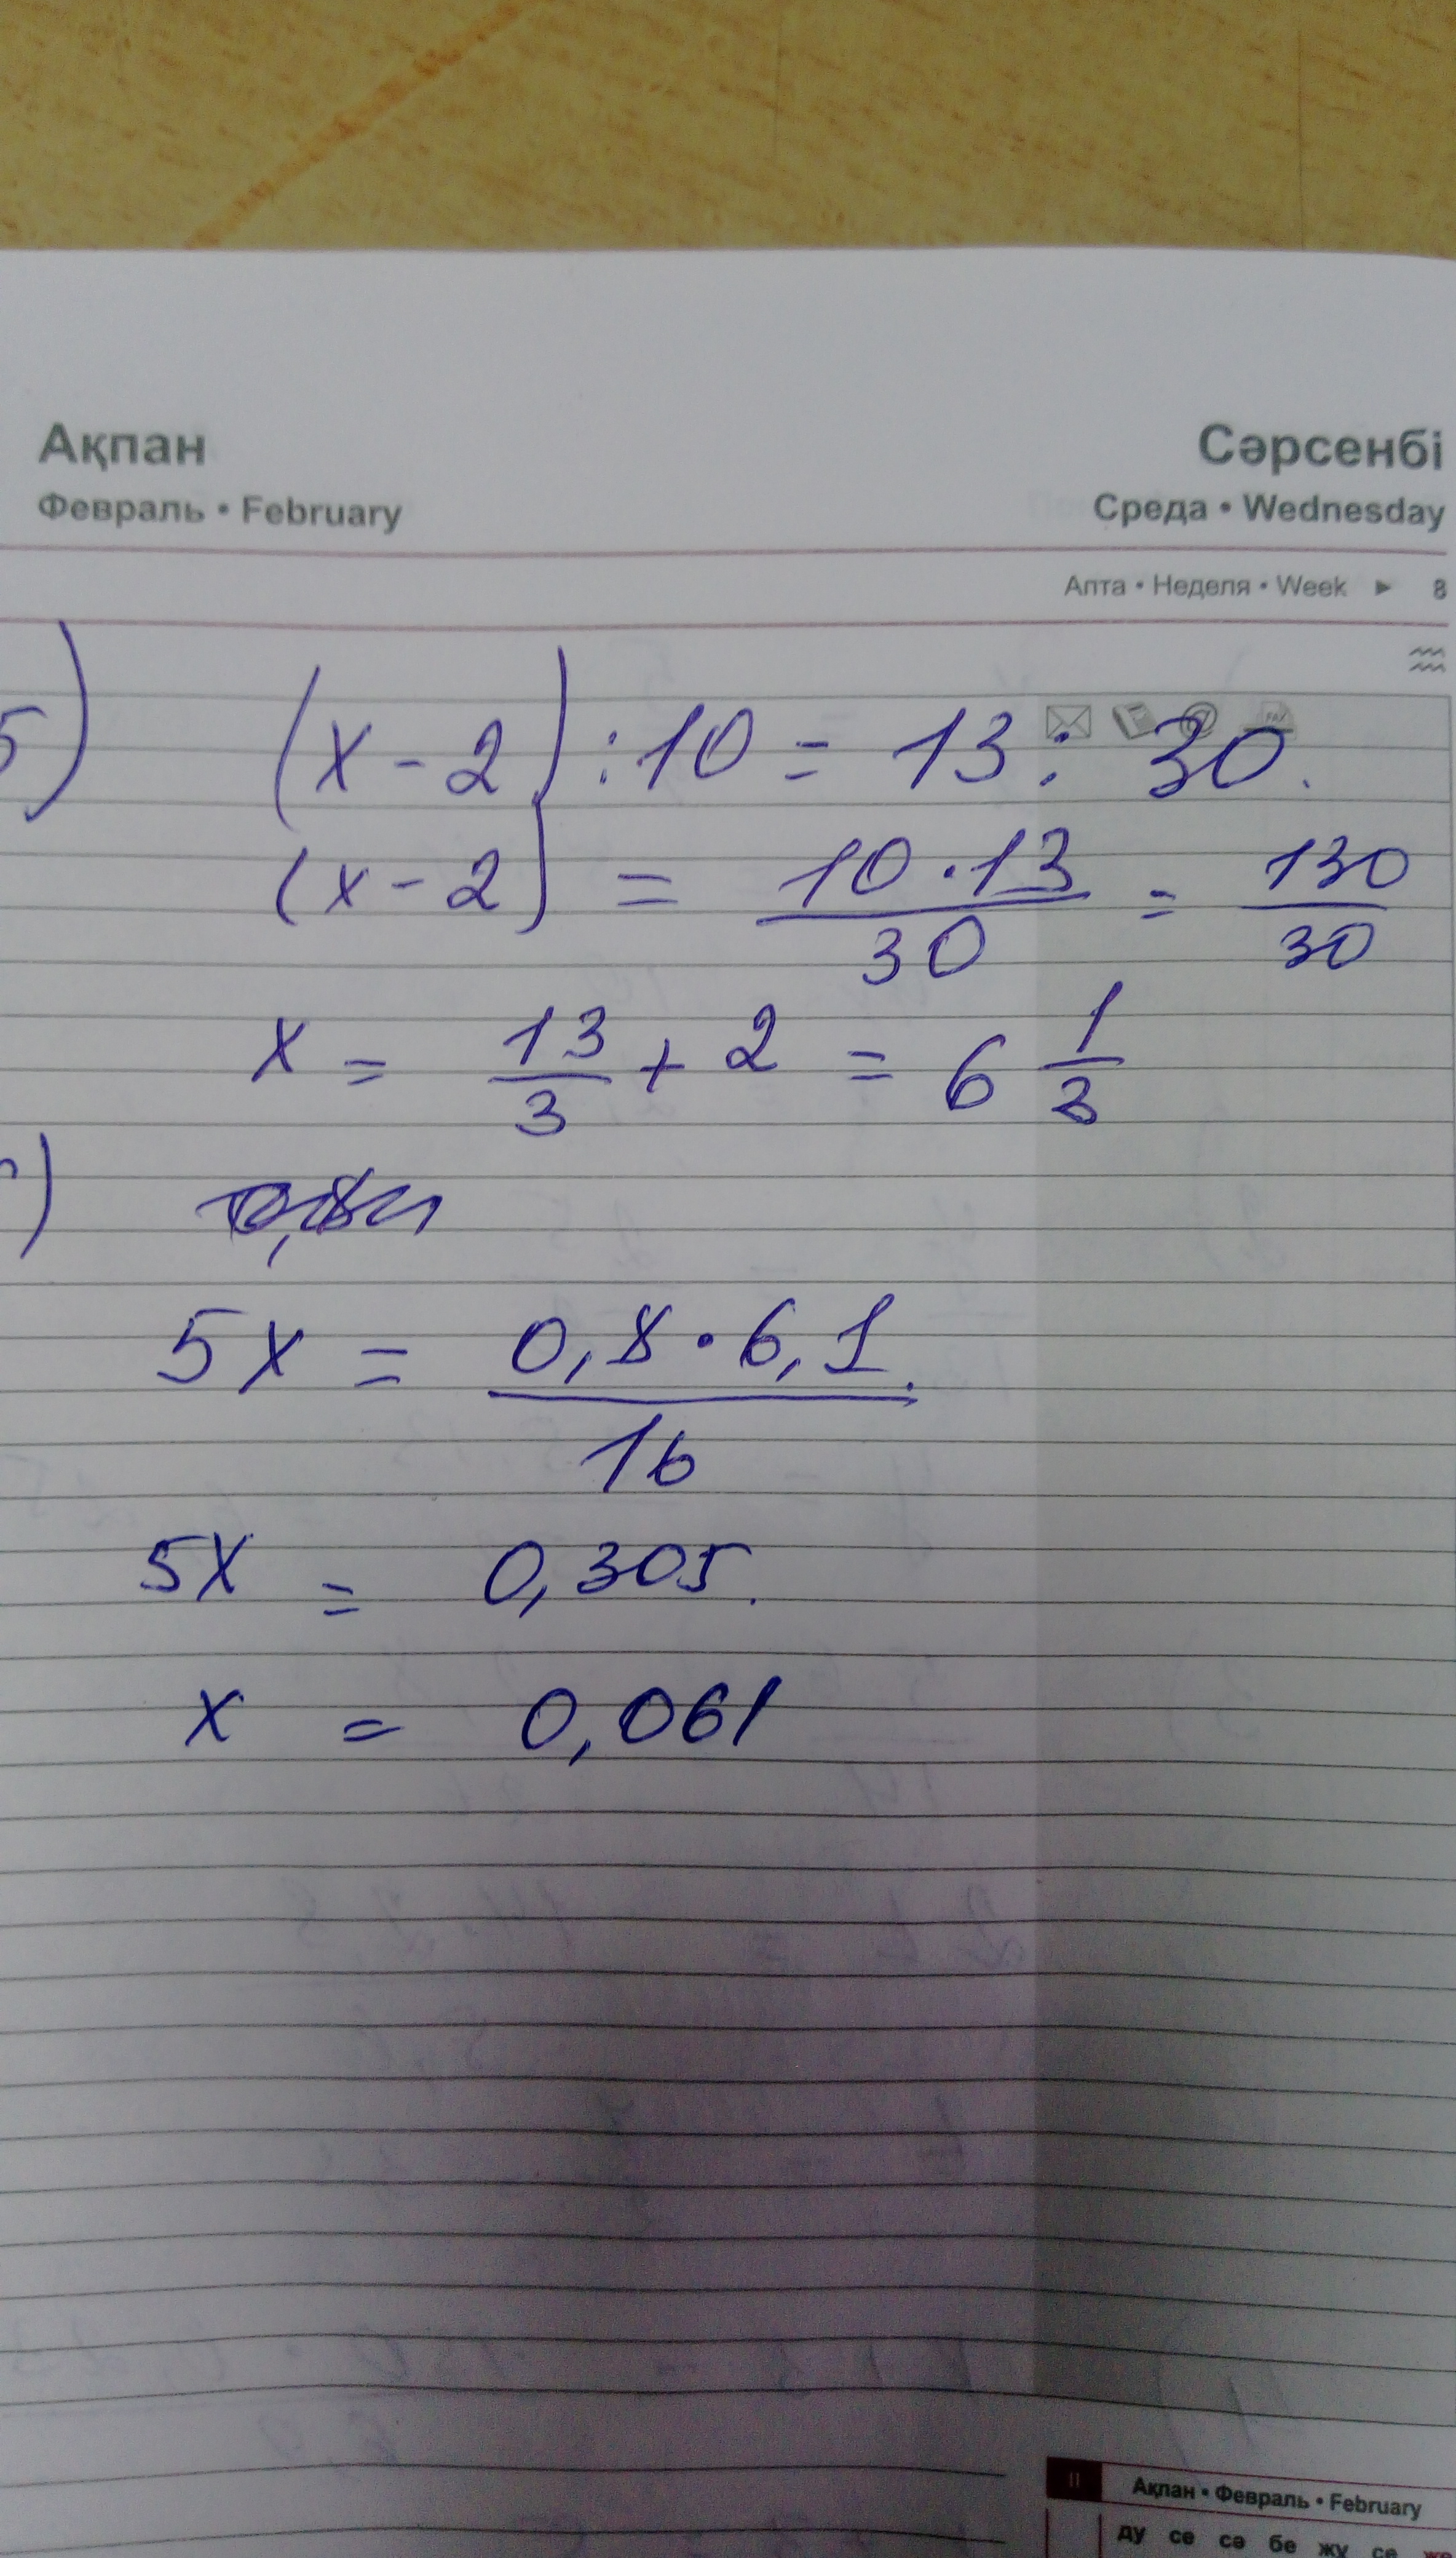 Ақпан
Февраль • February
Сәрсенбі
Среда • Wednesday
Апта • Неделя • Week ► 8
5) (x - 2) : 10 = 13 : 30.
(x - 2) = 10 · 13 / 30 = 130 / 30
x = 13/3 + 2 = 6 1/3
)
5x = 0,8 · 6,1 / 16
5x = 0,305.
x = 0,061
II Ақпан • Февраль • February
ду се сә бе жұ се